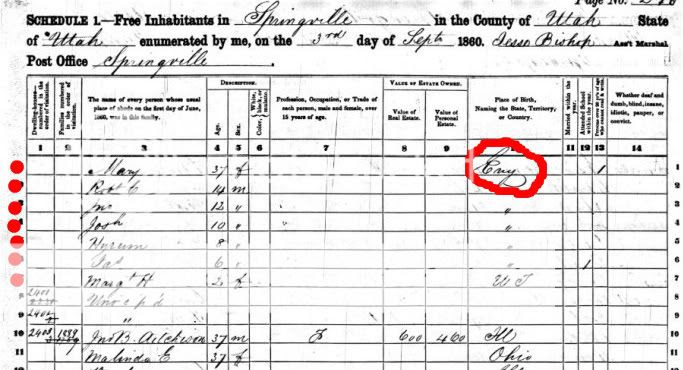 Page No. 2
SCHEDULE 1.—Free Inhabitants in Springville in the County of Utah State
of Utah enumerated by me, on the 3rd day of Septr 1860. Jesse Bishop Ass't Marshal.
Post Office Springville.
Dwelling-houses—numbered in the order of visitation.
Families numbered in the order of visitation.
The name of every person whose usual place of abode on the first day of June, 1860, was in this family.
DESCRIPTION.
Age.
Sex.
Color, White, black, or mulatto.
Profession, Occupation, or Trade of each person, male and female, over 15 years of age.
VALUE OF ESTATE OWNED.
Value of Real Estate.
Value of Personal Estate.
Place of Birth, Naming the State, Territory, or Country.
Married within the year.
Attended School within the year.
Whether deaf and dumb, blind, insane, idiotic, pauper, or convict.
1 2 3 4 5 6 7 8 9 11 12 13 14
Mary 37 f Eng 1 1
Robt C 14 m
Jno 12 " " 3
Josh 10 " " " 4
Hyrum 8 " " 5
Jas 6 " " 1 6
Margt H 2 f U T 7
8 2401 Unocp'd 8
9 2402 " 9
10 2403 1889 Jno B. Aitchison 37 m F 600 460 Ill 10
11 Malinda E 37 f Ohio 11